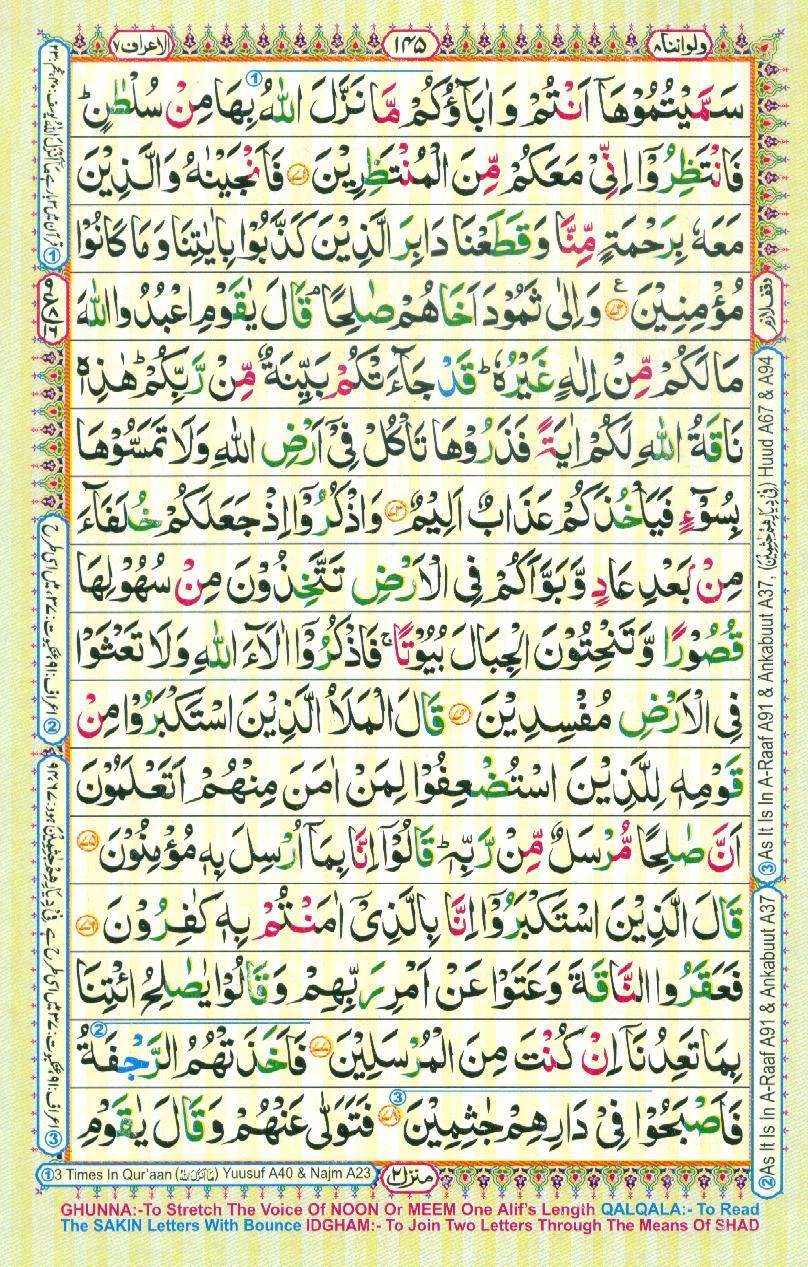 ولواننا ۸
۱۴۵
الاعراف ۷
سَمَّیْتُمُوْهَاۤ اَنْتُمْ وَ اٰبَآؤُكُمْ مَّا نَزَّلَ اللّٰهُ بِهَا مِنْ سُلْطٰنٍ ؕ
فَانْتَظِرُوْۤا اِنِّیْ مَعَكُمْ مِّنَ الْمُنْتَظِرِیْنَ ۝۷۱ فَاَنْجَیْنٰهُ وَ الَّذِیْنَ
مَعَهٗ بِرَحْمَةٍ مِّنَّا وَ قَطَعْنَا دَابِرَ الَّذِیْنَ كَذَّبُوْا بِاٰیٰتِنَا وَ مَا كَانُوْا
مُؤْمِنِیْنَ ۝۷۲ ع وَ اِلٰی ثَمُوْدَ اَخَاهُمْ صٰلِحًا ۘ قَالَ یٰقَوْمِ اعْبُدُوا اللّٰهَ
مَا لَكُمْ مِّنْ اِلٰهٍ غَیْرُهٗ ؕ قَدْ جَآءَتْكُمْ بَیِّنَةٌ مِّنْ رَّبِّكُمْ ؕ هٰذِهٖ
نَاقَةُ اللّٰهِ لَكُمْ اٰیَةً فَذَرُوْهَا تَاْكُلْ فِیْۤ اَرْضِ اللّٰهِ وَ لَا تَمَسُّوْهَا
بِسُوْٓءٍ فَیَاْخُذَكُمْ عَذَابٌ اَلِیْمٌ ۝۷۳ وَ اذْكُرُوْۤا اِذْ جَعَلَكُمْ خُلَفَآءَ
مِنْۢ بَعْدِ عَادٍ وَّ بَوَّاَكُمْ فِی الْاَرْضِ تَتَّخِذُوْنَ مِنْ سُهُوْلِهَا
قُصُوْرًا وَّ تَنْحِتُوْنَ الْجِبَالَ بُیُوْتًا ۚ فَاذْكُرُوْۤا اٰلَآءَ اللّٰهِ وَ لَا تَعْثَوْا
فِی الْاَرْضِ مُفْسِدِیْنَ ۝۷۴ قَالَ الْمَلَاُ الَّذِیْنَ اسْتَكْبَرُوْا مِنْ
قَوْمِهٖ لِلَّذِیْنَ اسْتُضْعِفُوْا لِمَنْ اٰمَنَ مِنْهُمْ اَتَعْلَمُوْنَ
اَنَّ صٰلِحًا مُّرْسَلٌ مِّنْ رَّبِّهٖ ؕ قَالُوْۤا اِنَّا بِمَاۤ اُرْسِلَ بِهٖ مُؤْمِنُوْنَ ۝۷۵
قَالَ الَّذِیْنَ اسْتَكْبَرُوْۤا اِنَّا بِالَّذِیْۤ اٰمَنْتُمْ بِهٖ كٰفِرُوْنَ ۝۷۶
فَعَقَرُوا النَّاقَةَ وَ عَتَوْا عَنْ اَمْرِ رَبِّهِمْ وَ قَالُوْا یٰصٰلِحُ ائْتِنَا
بِمَا تَعِدُنَاۤ اِنْ كُنْتَ مِنَ الْمُرْسَلِیْنَ ۝۷۷ فَاَخَذَتْهُمُ الرَّجْفَةُ
فَاَصْبَحُوْا فِیْ دَارِهِمْ جٰثِمِیْنَ ۝۷۸ فَتَوَلّٰی عَنْهُمْ وَ قَالَ یٰقَوْمِ
وقف لازم
③ As It Is In A-Raaf A91 & Ankabuut A37, (فِیْ دِیَارِهِمْ جٰثِمِیْنَ) Huud A67 & A94
② As It Is In A-Raaf A91 & Ankabuut A37
منزل ۲
① 3 Times In Qur'aan (مَاۤ اَنْزَلَ اللّٰهُ) Yuusuf A40 & Najm A23
GHUNNA:-To Stretch The Voice Of NOON Or MEEM One Alif's Length QALQALA:- To Read
The SAKIN Letters With Bounce IDGHAM:- To Join Two Letters Through The Means Of SHAD